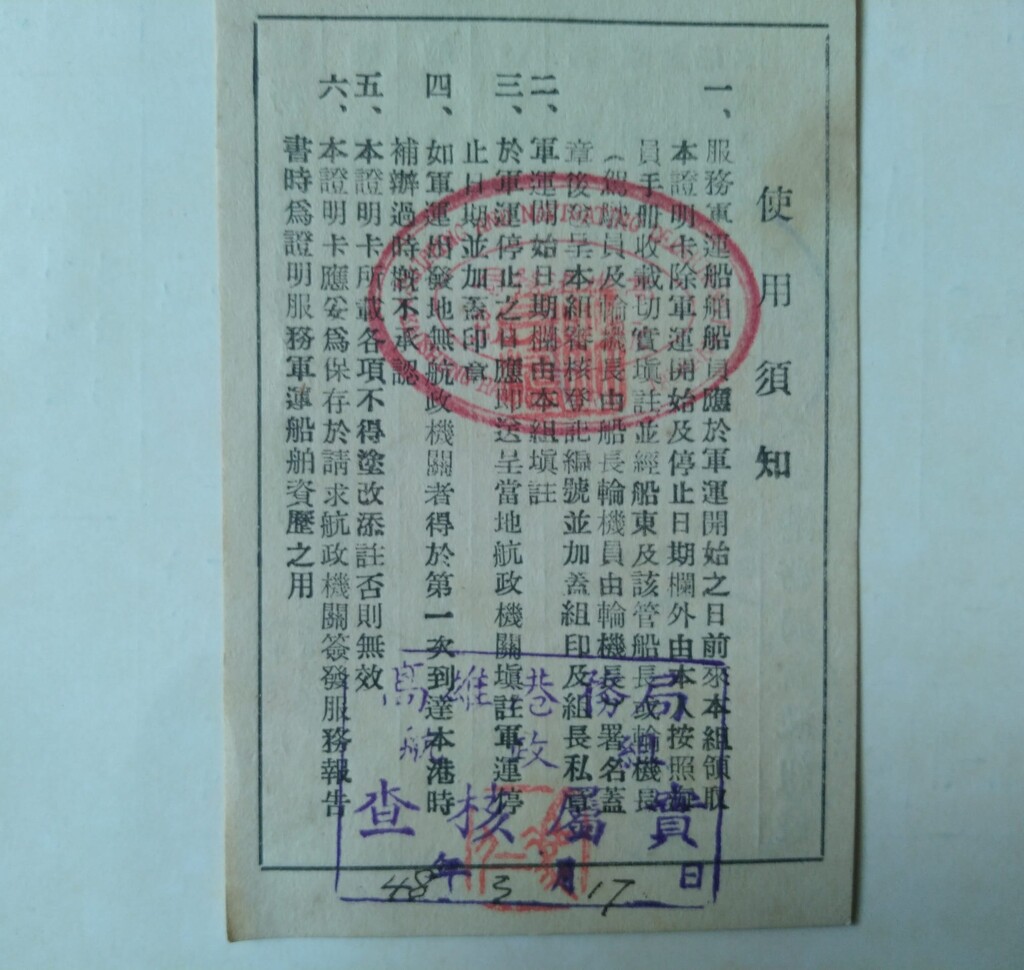 使用須知
一、服務軍運船舶船員應於軍運開始之日前來本組領取
本證明卡除軍運開始及停止日期欄外由本人按照海
員手册收載切實塡註並經船東及該管船長或輪機長
（駕駛員及輪機長由船長輪機員由輪機長）署名蓋
章後送呈本組審核登記編號並加蓋組印及組長私章
二、軍運開始日期欄由本組塡註
三、於軍運停止之日應卽送呈當地航政機關塡註軍運停
止日期並加蓋印章
四、如軍運出發地無航政機關者得於第一次到達本港時
補辦過時槪不承認
五、本證明卡所載各項不得塗改添註否則無效
六、本證明卡應妥爲保存於請求航政機關簽發服務報告
書時爲證明服務軍運船舶資歷之用
高雄港務局
航政組
查核屬實
48年3月17日